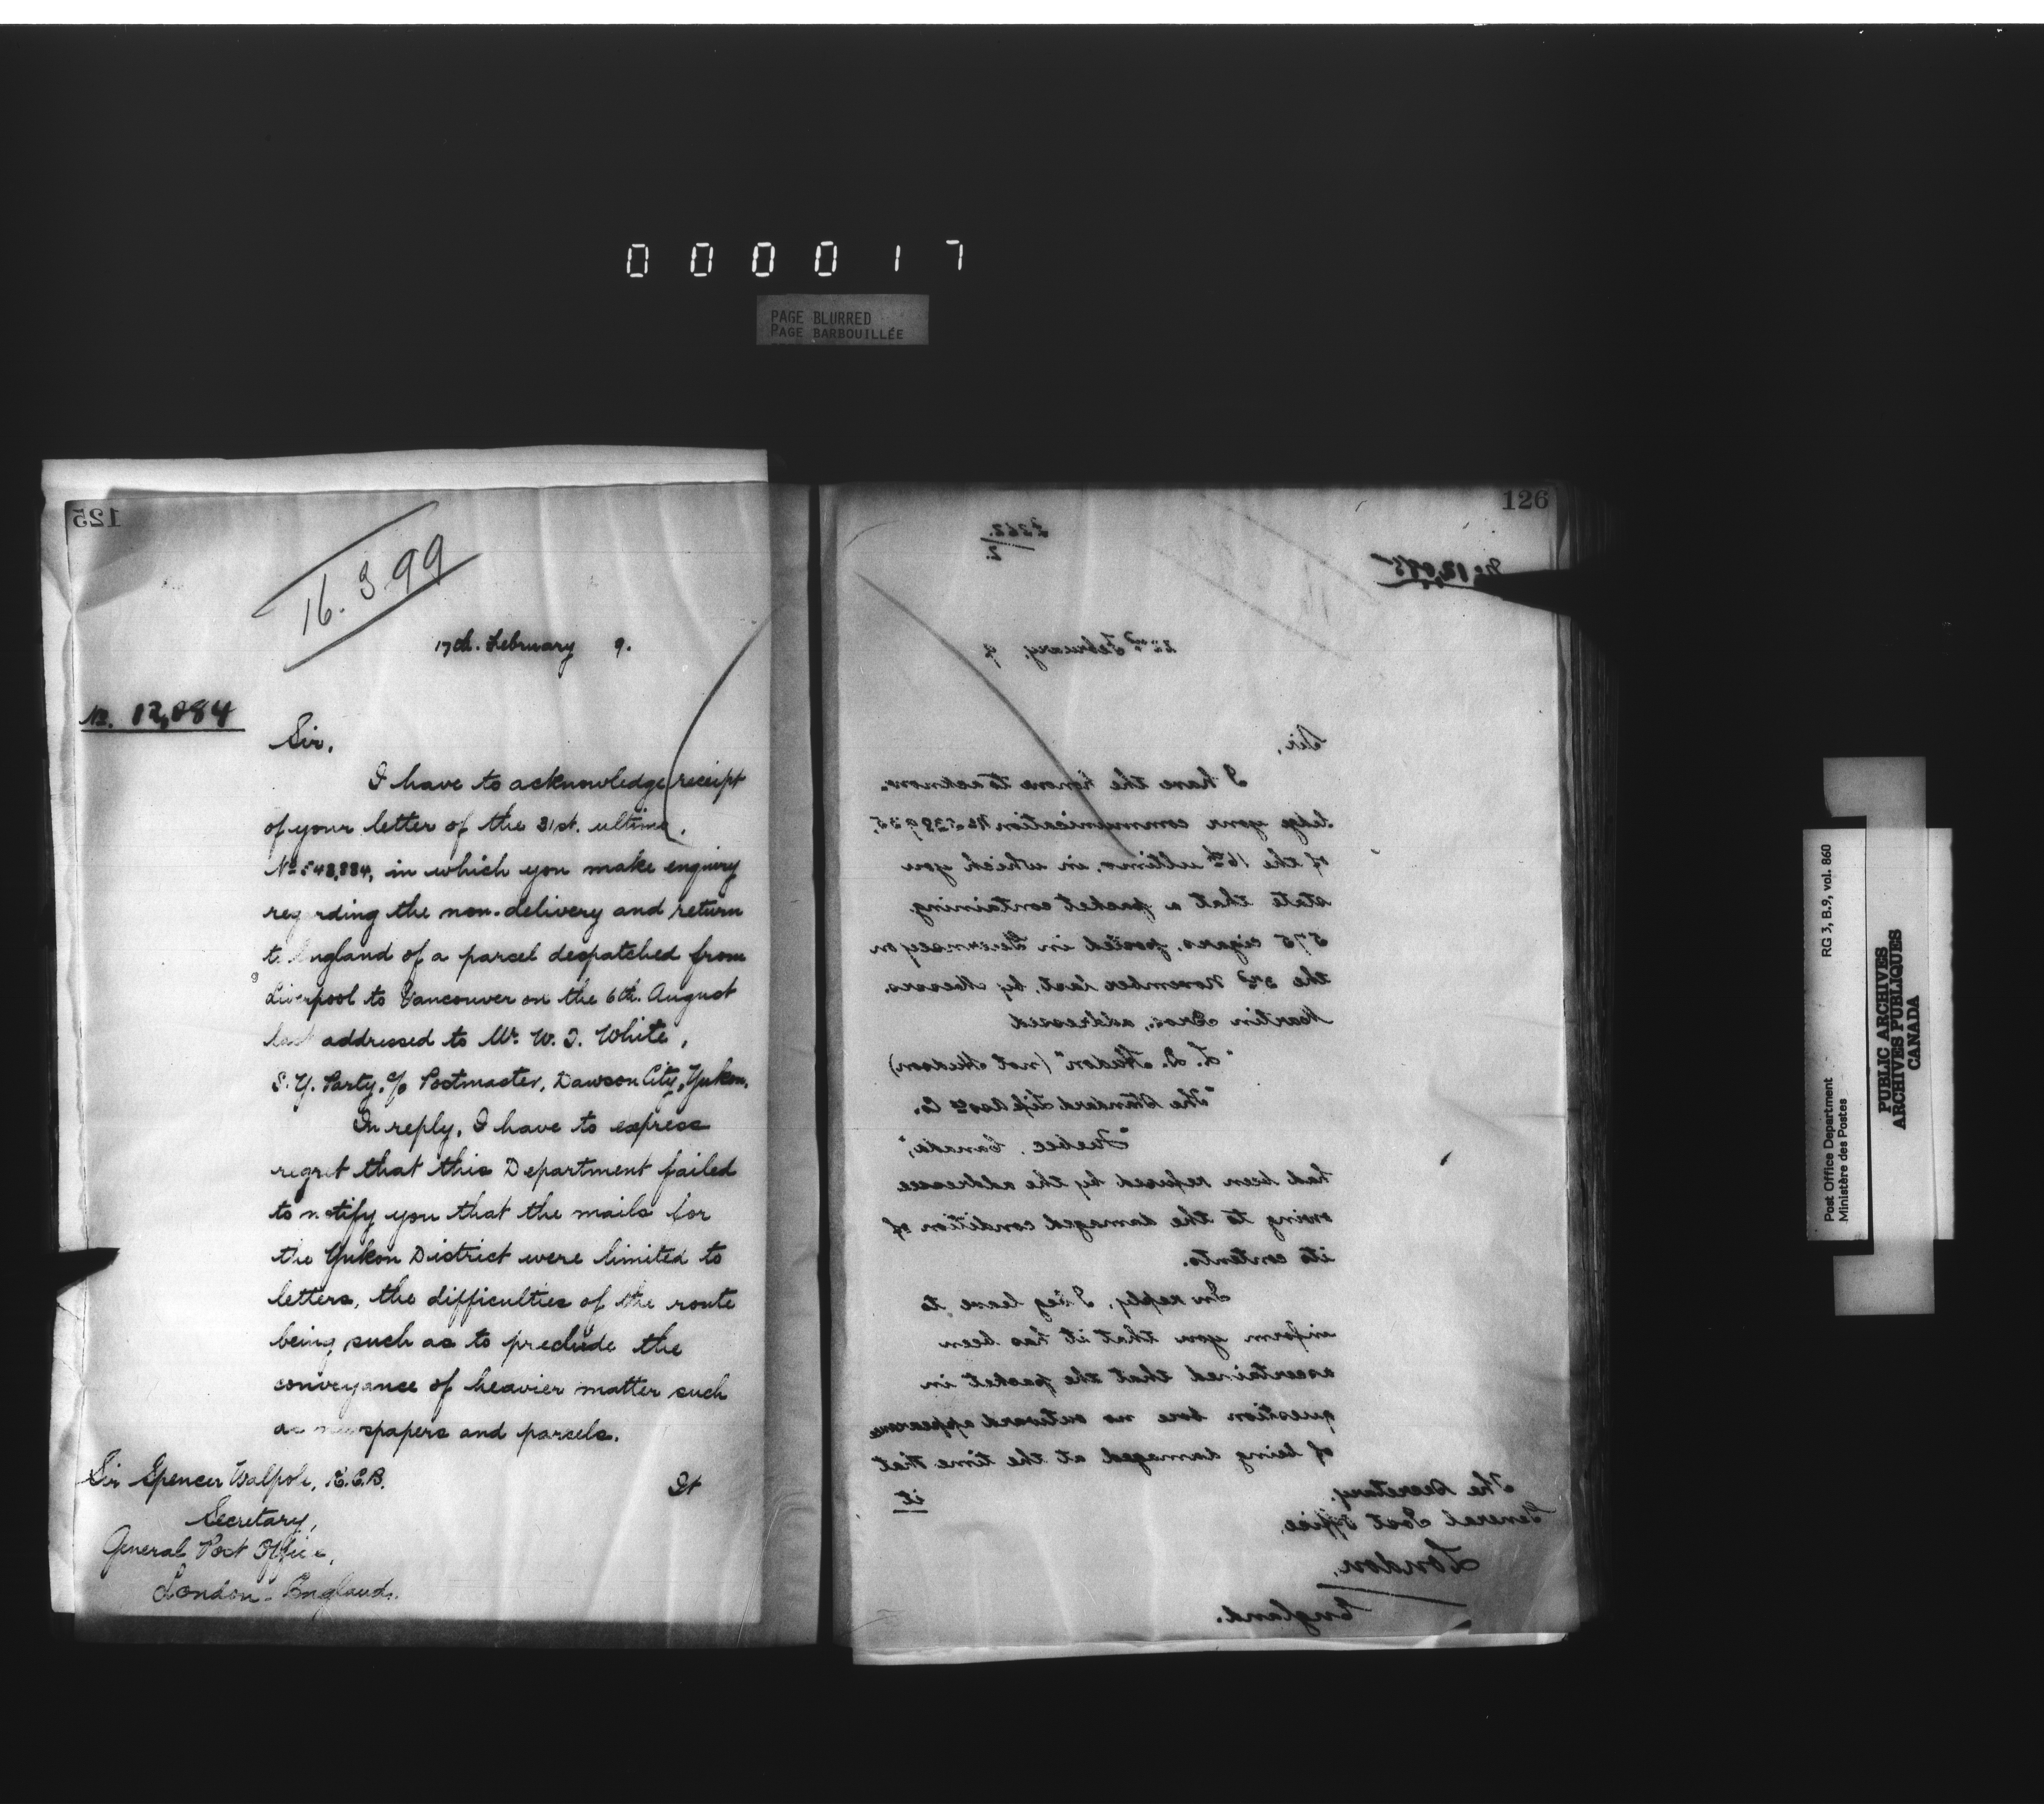 000017
PAGE BLURRED
PAGE BARBOUILLÉE
125
16.3.99
17th. February 9.
No. 12,084
Sir,
I have to acknowledge receipt
of your letter of the 31st. ultimo,
No 548,884, in which you make enquiry
regarding the non-delivery and return
to England of a parcel despatched from
Liverpool to Vancouver on the 6th. August
last addressed to Mr. W. J. White,
S.Y. Party, c/o Postmaster, Dawson City, Yukon.
In reply, I have to express
regret that this Department failed
to notify you that the mails for
the Yukon District were limited to
letters, the difficulties of the route
being such as to preclude the
conveyance of heavier matter such
as newspapers and parcels.
Sir Spencer Walpole, K.C.B.
It
Secretary,
General Post Office,
London - England.
126
No 12,085
22nd February, 9
Sir,
I have the honor to acknow-
ledge your communication No
of the 16th ultimo, in which you
state that a packet containing
575 cigars, posted in Guernsey on
the 3rd November last, by Messrs.
Martin Bros., addressed
"L. D. Hudon" (not Hudson)
"The Standard Life Assce Co.
"Quebec, Canada",
had been refused by the addressee
owing to the damaged condition of
its contents.
In reply, I beg leave to
inform you that it has been
ascertained that the packet in
question bore no outward appearance
of being damaged at the time that
it
The Secretary,
General Post Office,
London,
England.
Post Office Department
Ministère des Postes
RG 3, B.9, vol. 860
PUBLIC ARCHIVES
ARCHIVES PUBLIQUES
CANADA